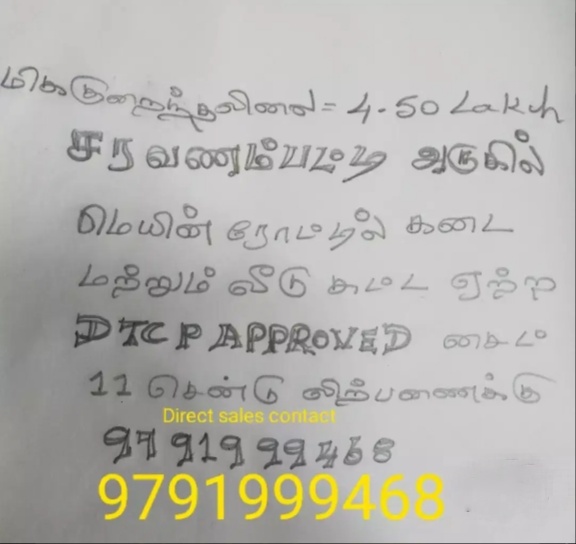 மிககுறைந்தவிலை = 4.50 Lakh
சரவணம்பட்டி அருகில்
மெயின் ரோட்டில் கடை
மற்றும் வீடு கட்ட ஏற்ற
DTCP APPROVED சைட்
11 சென்டு விற்பனைக்கு
Direct sales contact
9791999468
9791999468